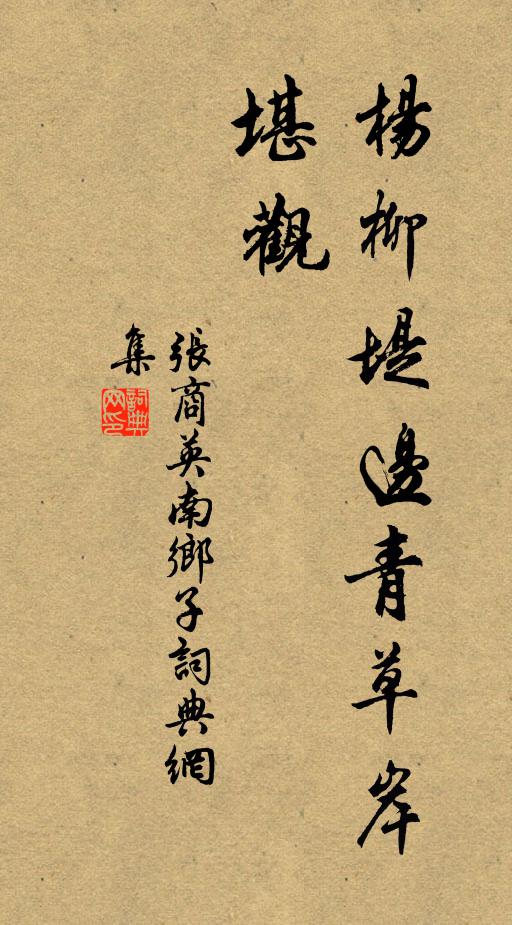 楊柳堤邊青草岸
堪觀
張商英南鄉子詞典網
集
詞典
网印